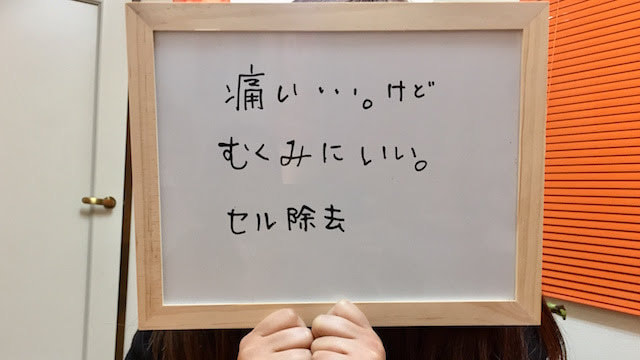 痛い・・・。けど
むくみにいい。
セル除去